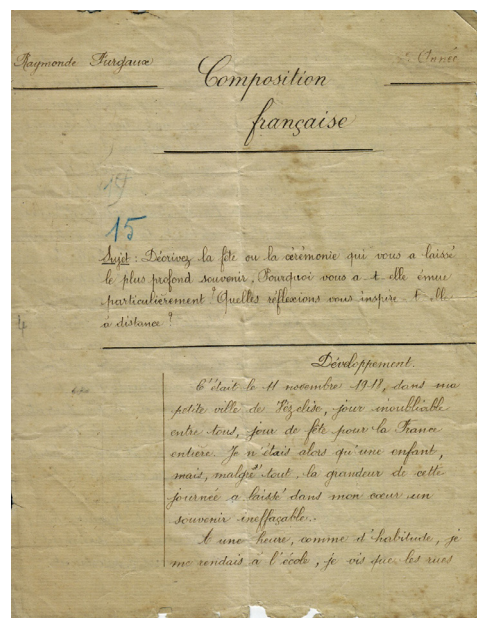 Raymonde Furgaux
Année
Composition
française
19
15
Sujet : Décrivez la fête ou la cérémonie qui vous a laissé
le plus profond souvenir, Pourquoi vous a-t-elle émue
particulièrement ? Quelles réflexions vous inspire-t-elle
à distance ?
Développement.
C'était le 11 novembre 1918, dans ma
petite ville de Vézelise, jour inoubliable
entre tous, jour de fête pour la France
entière. Je n'étais alors qu'une enfant,
mais, malgré tout, la grandeur de cette
journée a laissé dans mon cœur un
souvenir ineffaçable.
A une heure, comme d'habitude, je
me rendais à l'école, je vis que les rues